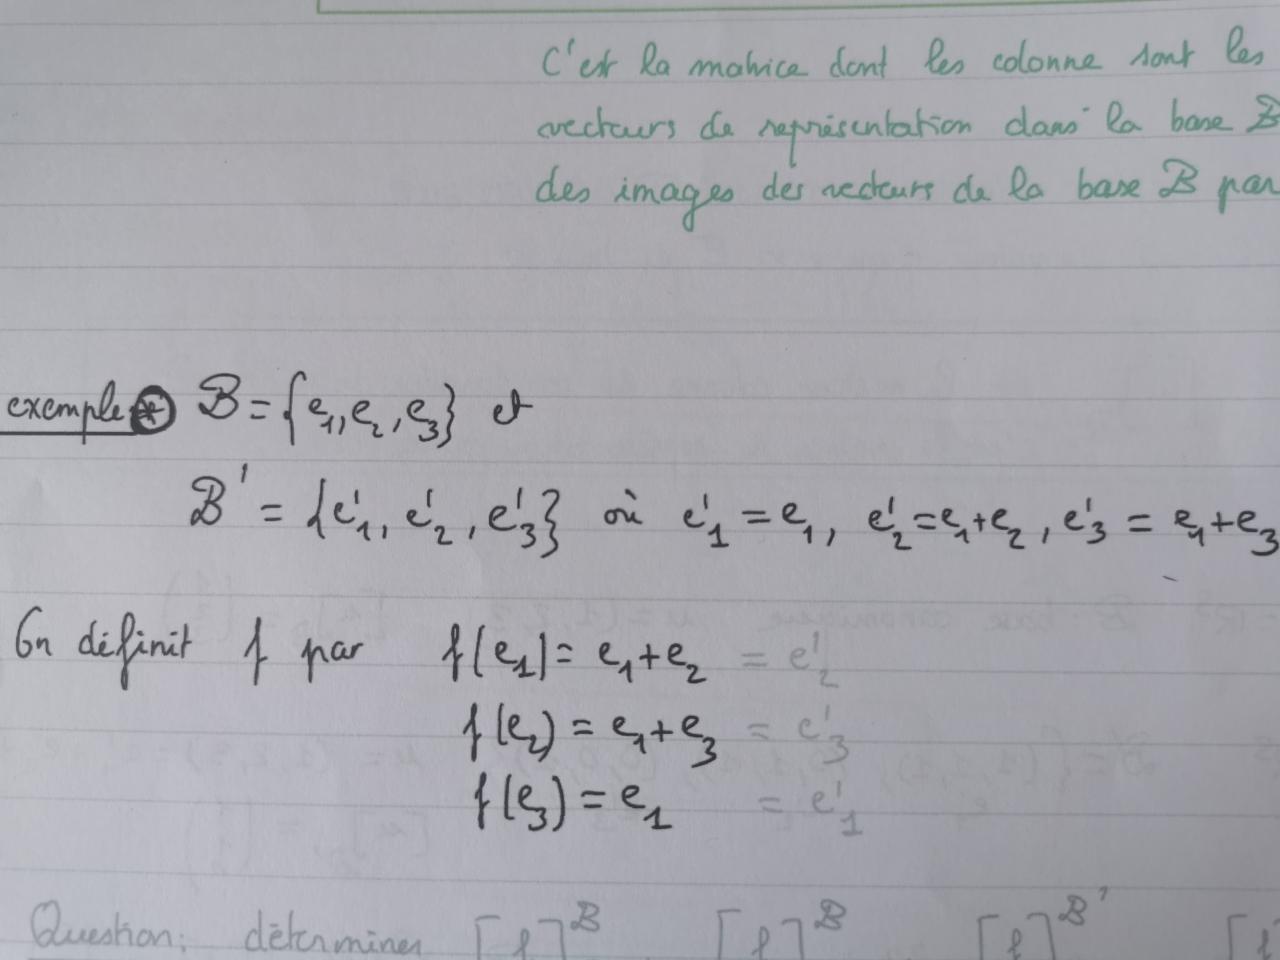 C'est la matrice dont les colonne sont les
vecteurs de représentation dans la base B
des images des vecteurs de la base B par
exemple * B = {e₁, e₂, e₃} et
B' = {e'₁, e'₂, e'₃} où e'₁ = e₁, e'₂ = e₁+e₂, e'₃ = e₁+e₃
On définit f par f(e₁) = e₁+e₂ = e'₂
f(e₂) = e₁+e₃ = e'₃
f(e₃) = e₁ = e'₁
Question: déterminer [f]^B [f]^B [f]^B' [f